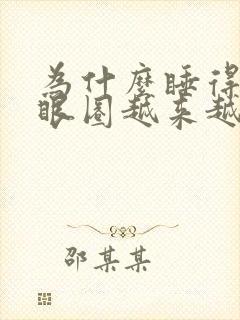 為什麼睡得
眼圈越来越
邵某某